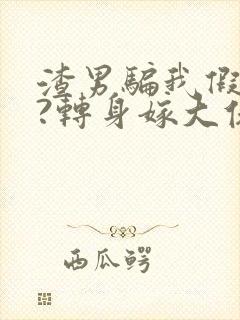 渣男騙我假
?轉身嫁大
西瓜鳄